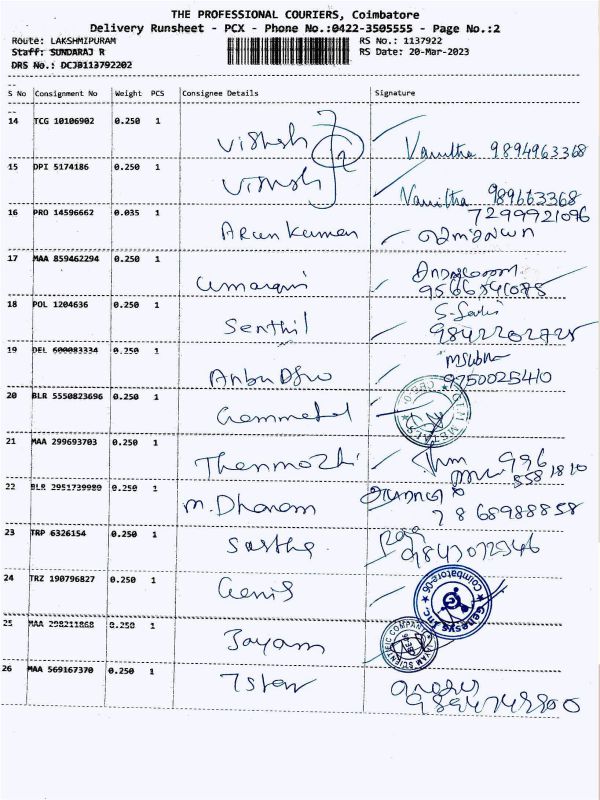 THE PROFESSIONAL COURIERS, Coimbatore
Delivery Runsheet - PCX - Phone No.:0422-3505555 - Page No.:2
Route: LAKSHMIPURAM RS No.: 1137922
Staff: SUNDARAJ R RS Date: 20-Mar-2023
DRS No.: DCJB113792202
S No Consignment No Weight PCS Consignee Details Signature
14 TCG 10106902 0.250 1 Vignesh Vanitha 9894963368
15 DPI 5174186 0.250 1 Vanitha 989663368
16 PRO 14596662 0.035 1 Arun Kumar 7299921096
17 MAA 859462294 0.250 1 9566541075
18 POL 1204636 0.250 1 Senthil 9842202725
19 DEL 600083334 0.250 1 9750025410
20 BLR 5550823696 0.250 1
21 MAA 299693703 0.250 1 Thenmozhi 996
5581810
22 BLR 2951739980 0.250 1 M. Dhanam 7868988858
23 TRP 6326154 0.250 1 Sastha 9843072346
24 TRZ 190796827 0.250 1 Genesys Inc. Coimbatore-06
25 MAA 298211868 0.250 1 Jayam JAYAM SCIENTIFIC COMPANY
26 MAA 569167370 0.250 1 9894748800